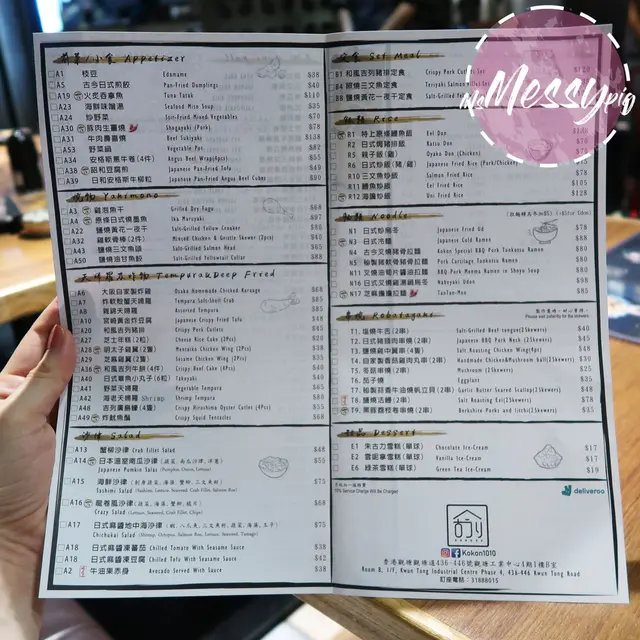 MeMessyPig
前菜/小食 Appetizer
A1 枝豆 Edamame $38
A5 古今日式煎餃 Pan-Fried Dumplings $40
A19 火炙吞拿魚 Tuna Tataki $119
A23 海鮮味噌湯 Seafood Miso Soup $35
A24 炒野菜 Soir-Fried Mixed Vegetables $70
A30 豚肉生薑燒 Shogayaki (Pork) $78
A31 牛肉壽喜燒 Beef Sukiyaki $138
A53 野菜鍋 Vegetable Pot $82
A34 安格斯薯牛卷(4件) Angus Beef Wrap(4pcs) $55
A38 甜和豆腐 Japanese Pan-Fried Tofu $49
A39 日和安格斯牛柳粒 Japanese Pan-Fried Angus Beef Cubes $90
燒物 Yakimono
A3 雞泡魚干 Grilled Dry Fugu $68
A4 原條日式燒墨魚 Ika Maruyaki $97
A22 鹽燒黃花一夜干 Salt-Grilled Yellow Croaker $68
A32 雞軟骨棒(2件) Minced Chicken & Gristle Skewer (2pcs)
A43 鹽燒三文魚頭 Salt-Grilled Salmon Head $65
A50 鹽燒油甘魚鮫 Salt-Grilled Yellowtail Collar $88
Tempura&Deep Fried
A6 大阪自家製炸雞 Osaka Homemade Chicken Karaage $68
A7 炸軟殼蟹天婦羅 Tempura Soft-Shell Crab $85
A8 雜錦天婦羅 Assorted Tempura $85
A10 賀崎黃金炸豆腐 Japanese Crispy Fried Tofu
A20 和風吉列豬排 Crispy Pork Cutlets $45
A27 芝士年糕(2粒) Cheese Rice Cake $28
A28 明太子雞翼(2件) Mentaiko Chicken Wing (2pcs) $38
A29 芝麻雞翼(2隻) Sesame Chicken Wing (2pcs) $35
A36 和風吉列牛餅(4件) Crispy Beef Cake(4pcs) $58
A40 日式章魚小丸子(6粒) Takoyaki $49
A41 野菜天婦羅 Vegetable Tempura $65
A42 海老天婦羅 Shrimp Shrimp Tempura $80
A48 吉列廣島蠔(4隻) Crispy Hiroshima Oyster Cutlet (4Pcs) $55
A49 炸魷魚鬚 Crispy Squid Tentacles $68
沙律 Salad
A13 蟹柳沙律 Crab Fillet Salad $48
A14 日本溫室南瓜沙律 $55
Japanese Pumkin Salad (Pumpkin, Onion, Lettuce)
A15 海鮮沙律 $78
Kaiseni Salad
A16 龍卷風沙律 $68
Crazy Salad (Lettuce, Seaweed, Crab Fillet, Chips)
A17 日式麻醬地中海沙律 $75
Chichukai Salad (Shrimp, Octopus, Salmon Roe, Lettuce, Seaweed, Tamago)
A18 日式麻醬凍蕃茄 Chilled Tomato With Seasame Sauce $38
A18 日式麻醬凍豆腐 Chilled Tofu With Seasame Sauce $42
A2 牛油果赤身 Avocado Served With Sauce $38
定食 Set Meal
B1 和風吉列豬扒定食 Crispy Pork Cutlet Set $129
B4 照燒三文魚定食 Teriyaki Salmon Fillet Set
B8 鹽燒黃花一夜干定食 Salt-Grilled
飯類 Rice
R1 特上原條鰻魚飯 Eel Don
R2 日式炸豬扒飯 Katsu Don
R5 親子飯(雞) Oyako Don (Chicken)
R6 日式炒飯(豬/雞) Japanese Fried Rice (Pork/Chicken) $78
R10 三文魚炒飯 Salmon Fried Rice $78
R11 鰻魚炒飯 Eel Fried Rice $105
R12 海膽炒飯 Uni Fried Rice $128
麵類 Noodles
N1 日式炒烏冬 Japanese Fried Ud $78
N3 日式冷麵 Japanese Cold Ramen $88
N4 古今特式燒豬骨拉麵 Kakon Special BBQ Pork Tonkotsu Ramen
N5 秘製豬軟骨豬骨拉麵 Pork Cartilage Tonkotsu Ramen
N11 叉燒油蔥片醬油拉麵 BBQ Pork Menma Ramen in Shoyu Soup $80
N16 日式叉燒雞湯鍋烏冬 Nabeyaki Udon $98
N17 芝麻擔擔拉麵 TanTan-Men $85
串燒 Robatayaki
T1. 塩燒牛舌(2串) Salt-Grilled Beef-tongue(2Skewers) $40
T2. 日式豬頸肉串燒(2串) Japanese BBQ Pork Neck (2Skewers) $45
T3. 鹽燒雞中翼(4隻) Salt Roasting Chicken Wing(4pc) $48
T4. 自家製香菇雞肉丸串(2串) Handmade Chicken&Mushroom ball(2Skewers) $39
T5. 冬菇串燒(2串) Mushroom (2Skewers) $25
T6. 茄子燒 Eggplant $35
T7. 秘製蒜香牛油燒帆立貝(2串) Garlic Butter Seared Scallop(2Skewers) $58
T8. 鹽燒活鰻(2串) Salt Roasting Eel(2Skewers) $78
T9. 黑豚露筍卷串燒(2串) Berkshire Porks and Jitchi(2Skewers) $45
甜品 Dessert
E1 朱古力雪糕(單球) Chocolate Ice-Cream $17
E2 雲呢拿雪糕(單球) Vanilla Ice-Cream $17
E6 綠茶雪糕(單球) Green Tea Ice-Cream $19
10% Service Charge Will Be Charged
deliveroo
Kakon1010
香港觀塘觀塘道436-446號觀塘工業中心4期1樓B室
Room B, 1/F, Kwun Tong Industrial Centre Phase 4, 436-446 Kwun Tong Road
訂座專線：31888015